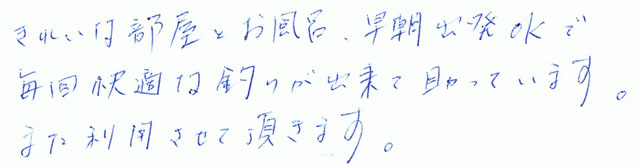 きれいな部屋とお風呂、早朝出発OKで
毎回快適な釣りが出来て助かっています。
また利用させて頂きます。